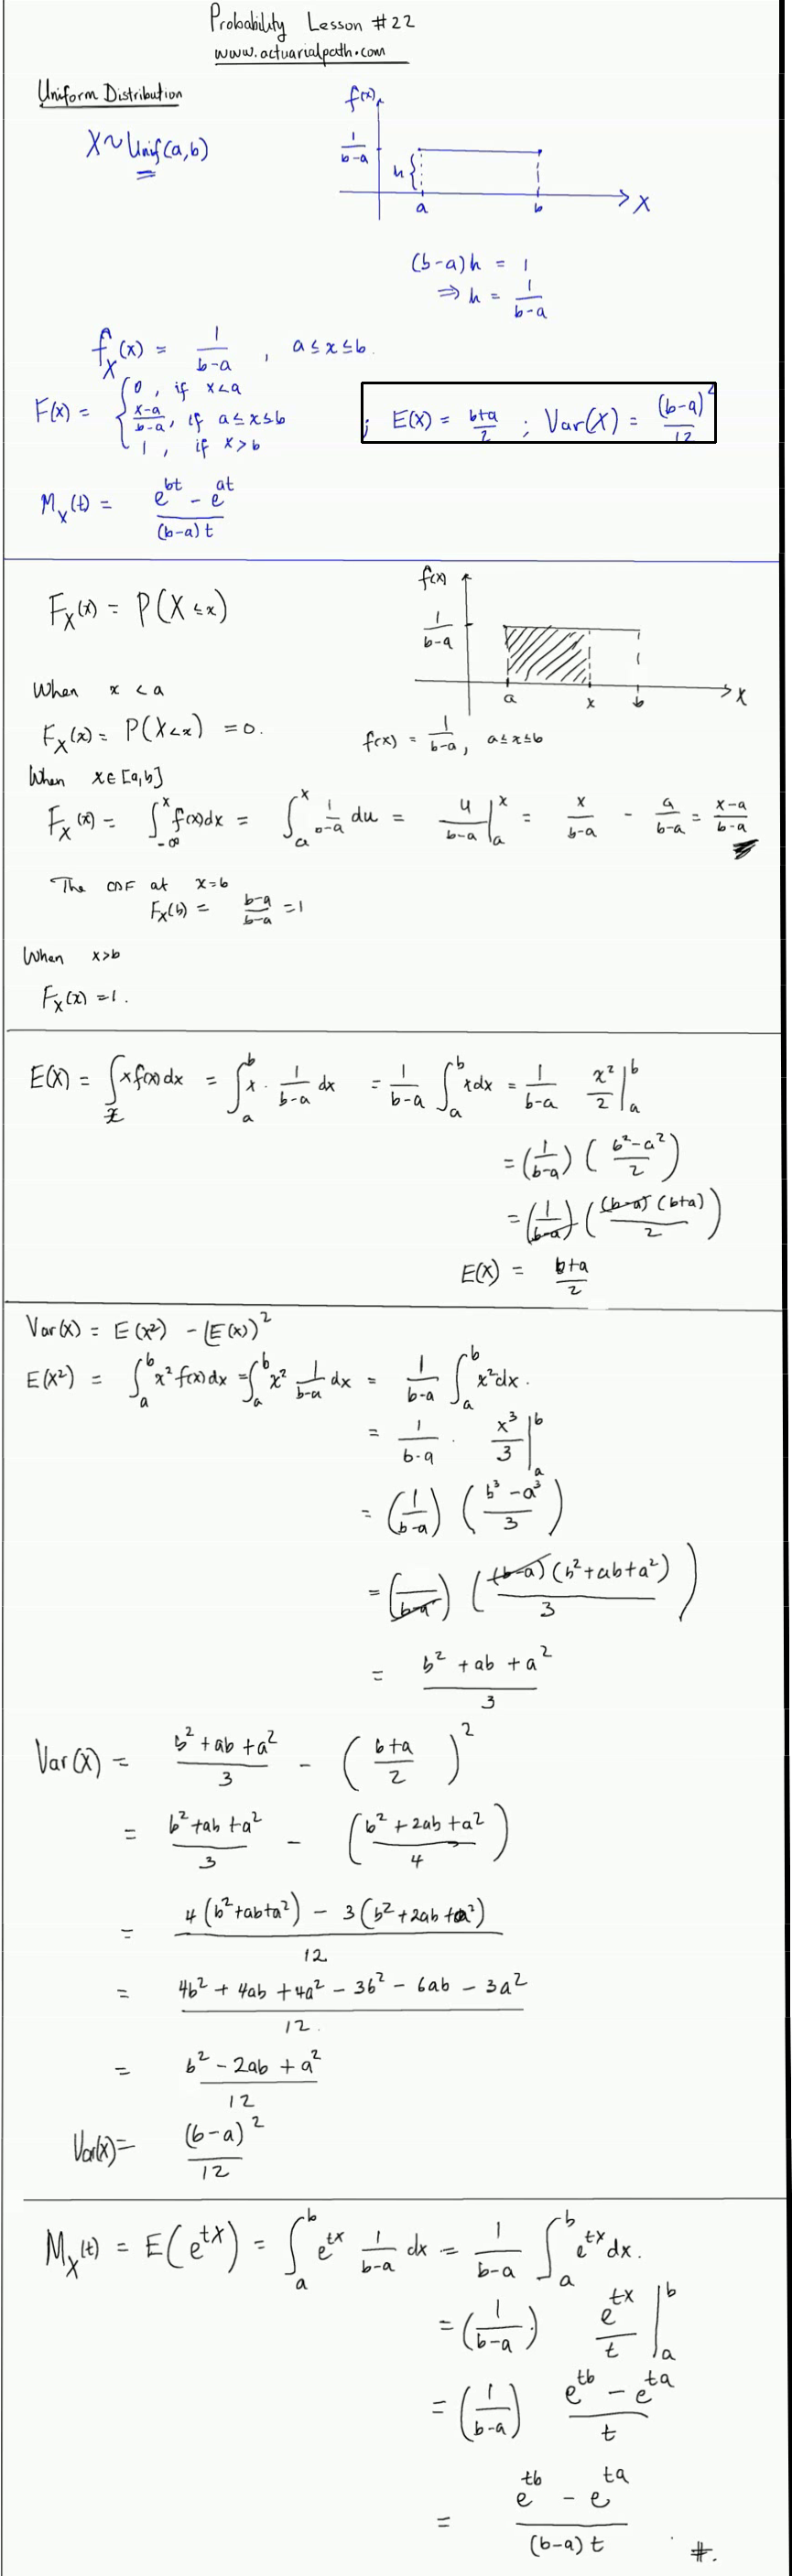 Probability Lesson #22
www.actuarialpath.com
Uniform Distribution
X ~ Unif(a,b)
f(x)
1/(b-a)
h {
a b X
(b-a)h = 1
⇒ h = 1/(b-a)
f_X(x) = 1/(b-a) , a ≤ x ≤ b.
F(x) = { 0 , if x<a
(x-a)/(b-a), if a ≤ x ≤ b
1 , if x > b
; E(X) = (b+a)/2 ; Var(X) = (b-a)^2/12
M_X(t) = (e^bt - e^at)/((b-a) t)
F_X(x) = P(X ≤ x)
f(x)
1/(b-a)
a x b X
f(x) = 1/(b-a), a ≤ x ≤ b
When x < a
F_X(x) = P(X<x) = 0.
When x ∈ [a,b]
F_X(x) = ∫_-∞^x f(x)dx = ∫_a^x 1/(b-a) du = u/(b-a) |_a^x = x/(b-a) - a/(b-a) = (x-a)/(b-a)
The CDF at x=b
F_X(b) = (b-a)/(b-a) = 1
When x>b
F_X(x) = 1.
E(X) = ∫_x x f(x) dx = ∫_a^b x · 1/(b-a) dx = 1/(b-a) ∫_a^b x dx = 1/(b-a) x^2/2 |_a^b
= (1/(b-a)) ((b^2-a^2)/2)
= (1/(b-a)) ((b-a)(b+a)/2)
E(X) = (b+a)/2
Var(X) = E(X^2) - (E(X))^2
E(X^2) = ∫_a^b x^2 f(x) dx = ∫_a^b x^2 1/(b-a) dx = 1/(b-a) ∫_a^b x^2 dx.
= 1/(b-a) · x^3/3 |_a^b
= (1/(b-a)) ((b^3 - a^3)/3)
= (1/(b-a)) ((b-a)(b^2+ab+a^2)/3)
= (b^2 + ab + a^2)/3
Var(X) = (b^2 + ab + a^2)/3 - ((b+a)/2)^2
= (b^2 + ab + a^2)/3 - ((b^2 + 2ab + a^2)/4)
= (4(b^2+ab+a^2) - 3(b^2+2ab+a^2))/12
= (4b^2 + 4ab + 4a^2 - 3b^2 - 6ab - 3a^2)/12.
= (b^2 - 2ab + a^2)/12
Var(X) = (b-a)^2/12
M_X(t) = E(e^tX) = ∫_a^b e^tx 1/(b-a) dx = 1/(b-a) ∫_a^b e^tx dx.
= (1/(b-a)) e^tx/t |_a^b
= (1/(b-a)) (e^tb - e^ta)/t
= (e^tb - e^ta)/((b-a) t) #.